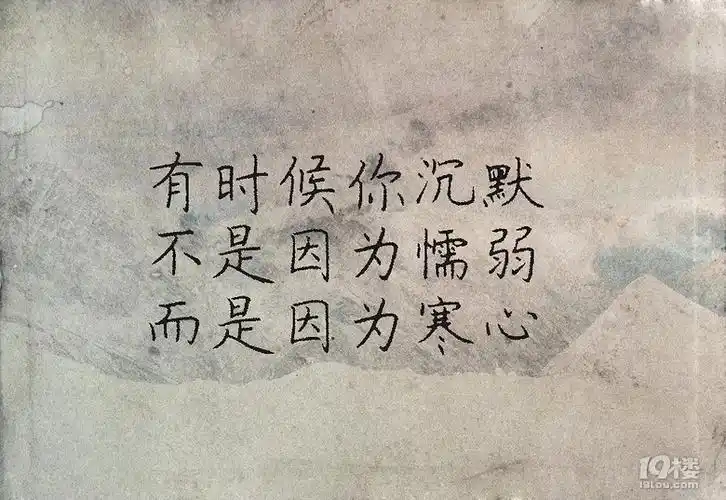 有时候你沉默
不是因为懦弱
而是因为寒心
19楼
19lou.com